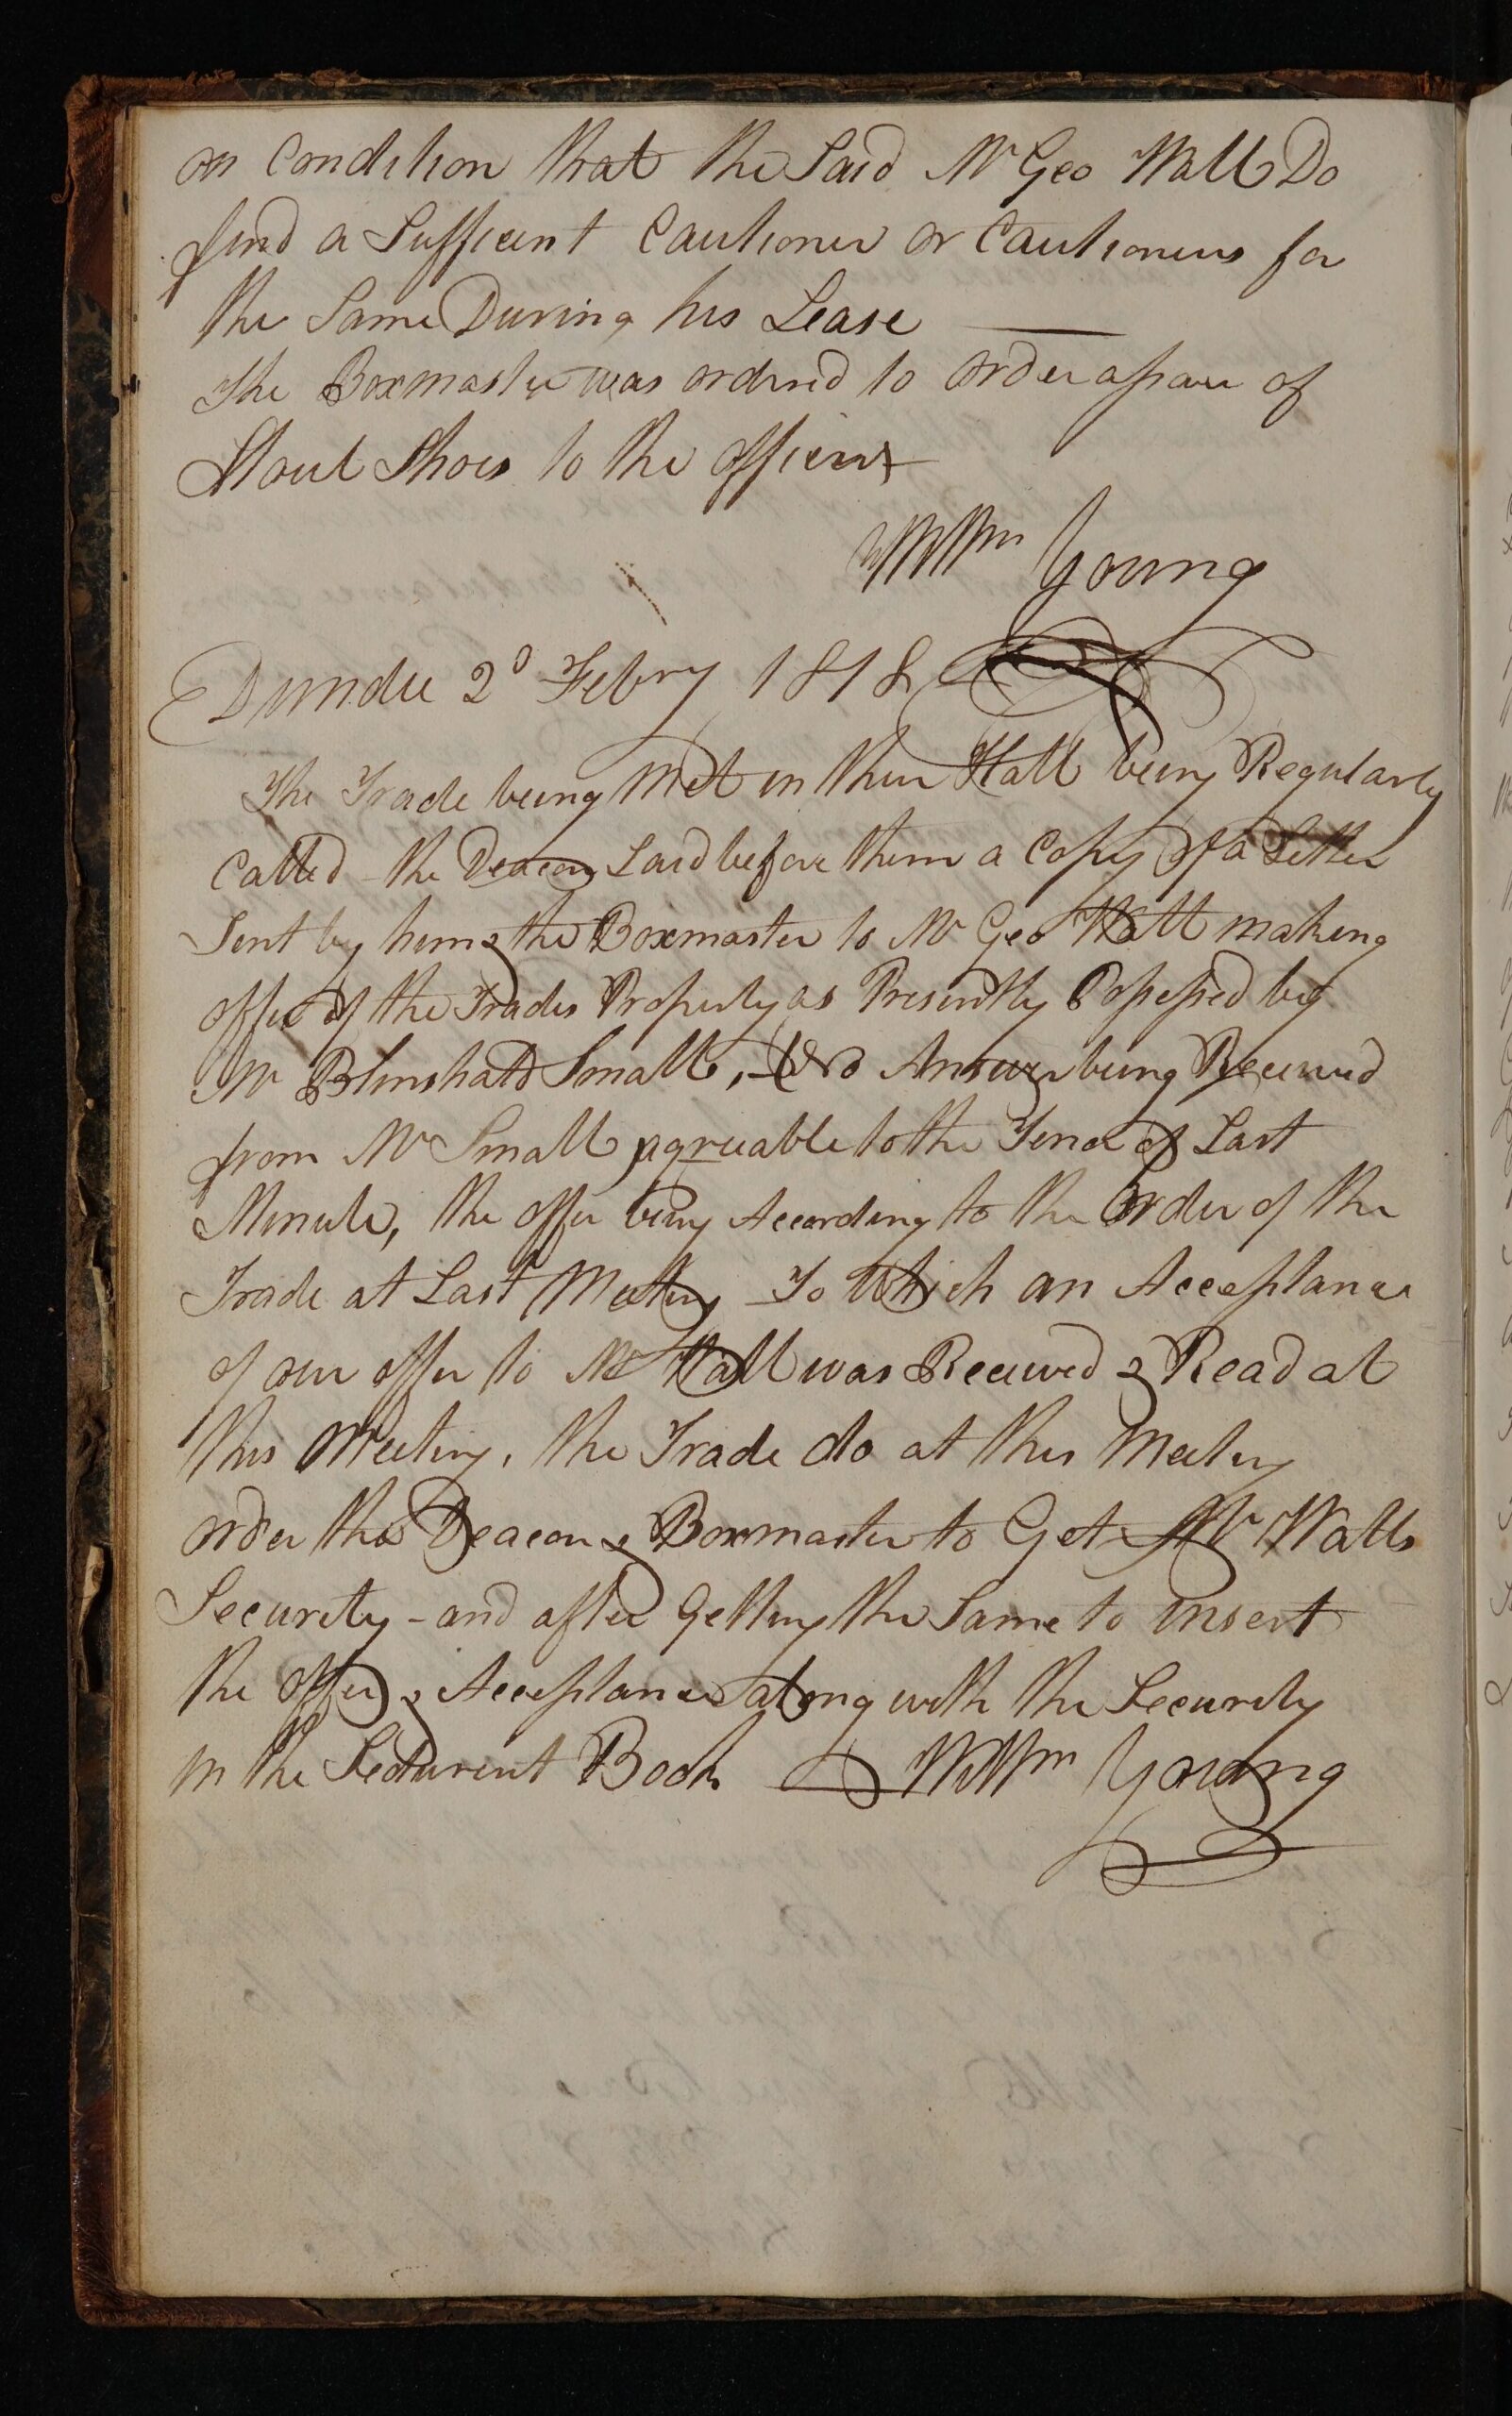 on Condition that the Said Mr Geo Wall Do
find a Sufficient Cautioner or Cautioners for
the Same During his Lease
The Boxmaster was ordered to order a pair of
Stout Shoes to the officer
Wm Young
Dundee 2d Febry 1818
The Trade being Met in their Hall being Regularly
Called the Deacon Laid before them a Copy of a Letter
Sent by him & the Boxmaster to Mr Geo Wall making
offer of the Trades Property as Presently Possessed by
Mr Blinshall Small, & No Answer being Received
from Mr Small agreeable to the Tenor of Last
Minute, the offer being According to the Order of the
Trade at Last Meeting To Which an Acceptance
of our offer to Mr Wall was Received & Read at
this Meeting, the Trade do at this Meeting
order the Deacon & Boxmaster to Get Mr Walls
Security - and after Getting the Same to insert
the offer & Acceptance along with the Security
in the Sedurent Book Wm Young